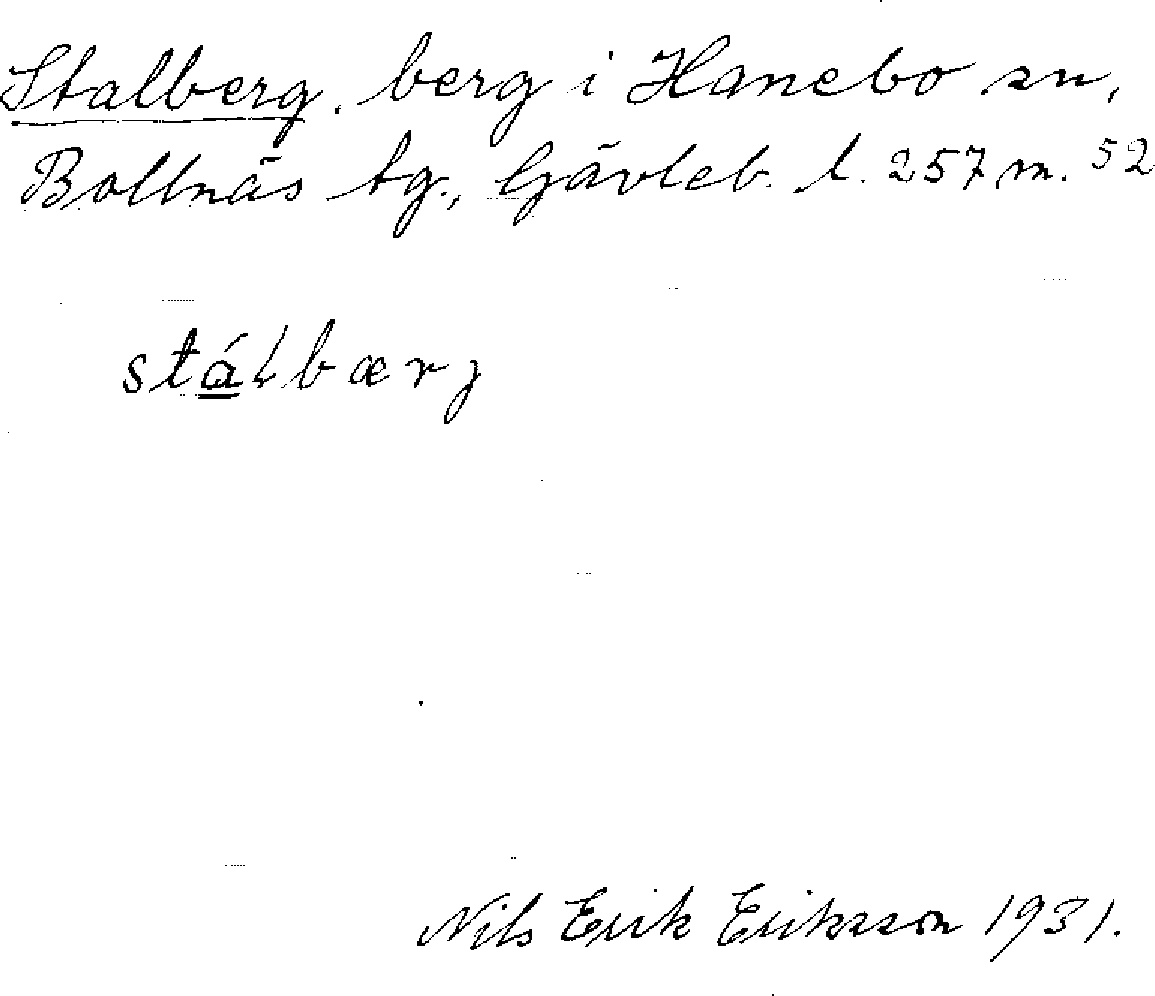 Stalberg. berg i Hanebo sn,
Bollnäs tg., Gävleb. l. 257 m. 52
stálbærj
Nils Erik Eriksson 1931.